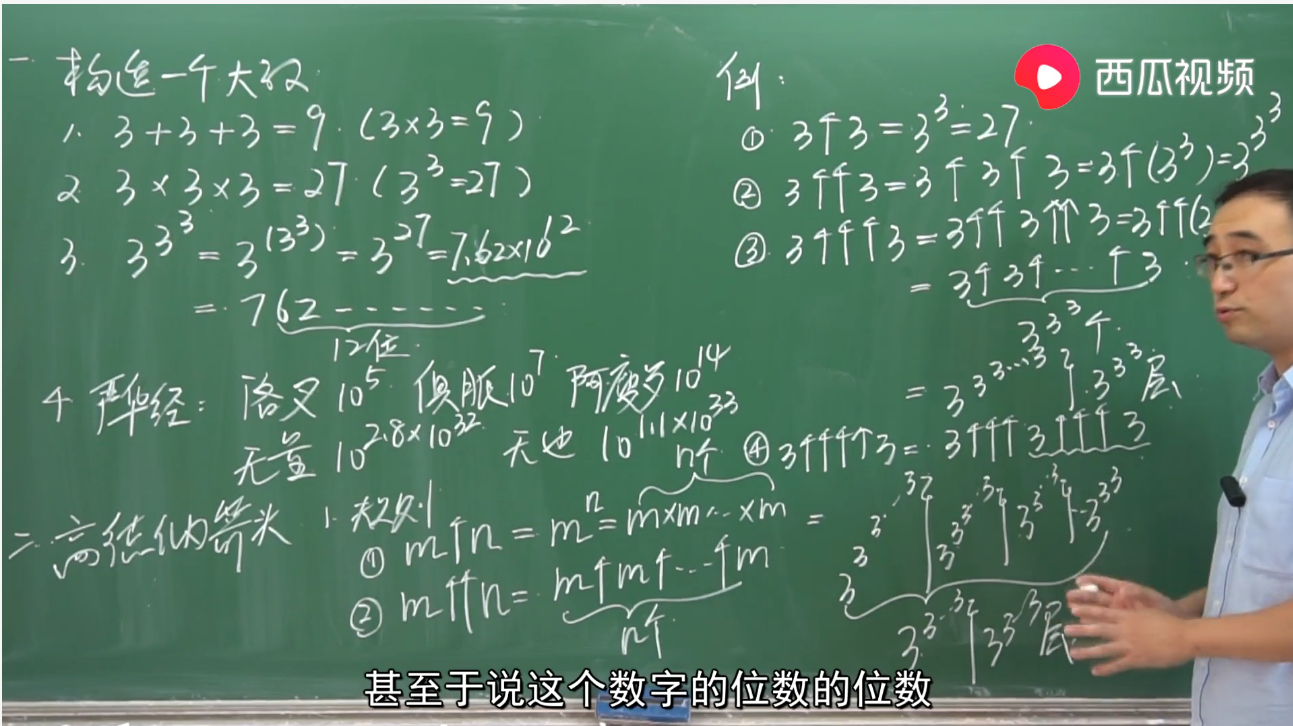 一. 构造一个大数
1. 3+3+3=9. (3×3=9)
2. 3×3×3=27 (3³=27)
3. 3^3^3 = 3^(3³) = 3^27 = 7.62×10^12
= 762-------
12位
4. 严华经: 洛叉 10^5 俱胝 10^7 阿庾多 10^14
无量 10^2.8×10^32 无边 10^1.1×10^33
二. 高德纳箭头 1. 规则
① m↑n = m^n = m×m…×m
n个
② m↑↑n = m↑m↑…↑m
n个
例:
① 3↑3=3³=27.
② 3↑↑3=3↑3↑3=3↑(3³)=3^3^3
③ 3↑↑↑3=3↑↑3↑↑3=3↑↑(3
= 3↑3↑…↑3
3^3^3个.
= 3^3^3^…^3 } 3^3^3层
④ 3↑↑↑↑3=3↑↑↑3↑↑↑3
=
3^3^…^3 } 3^3^…^3 } 3^3^…^3 } … 3^3^3
3^3^…^3 } 3^3^3层
西瓜视频
甚至于说这个数字的位数的位数